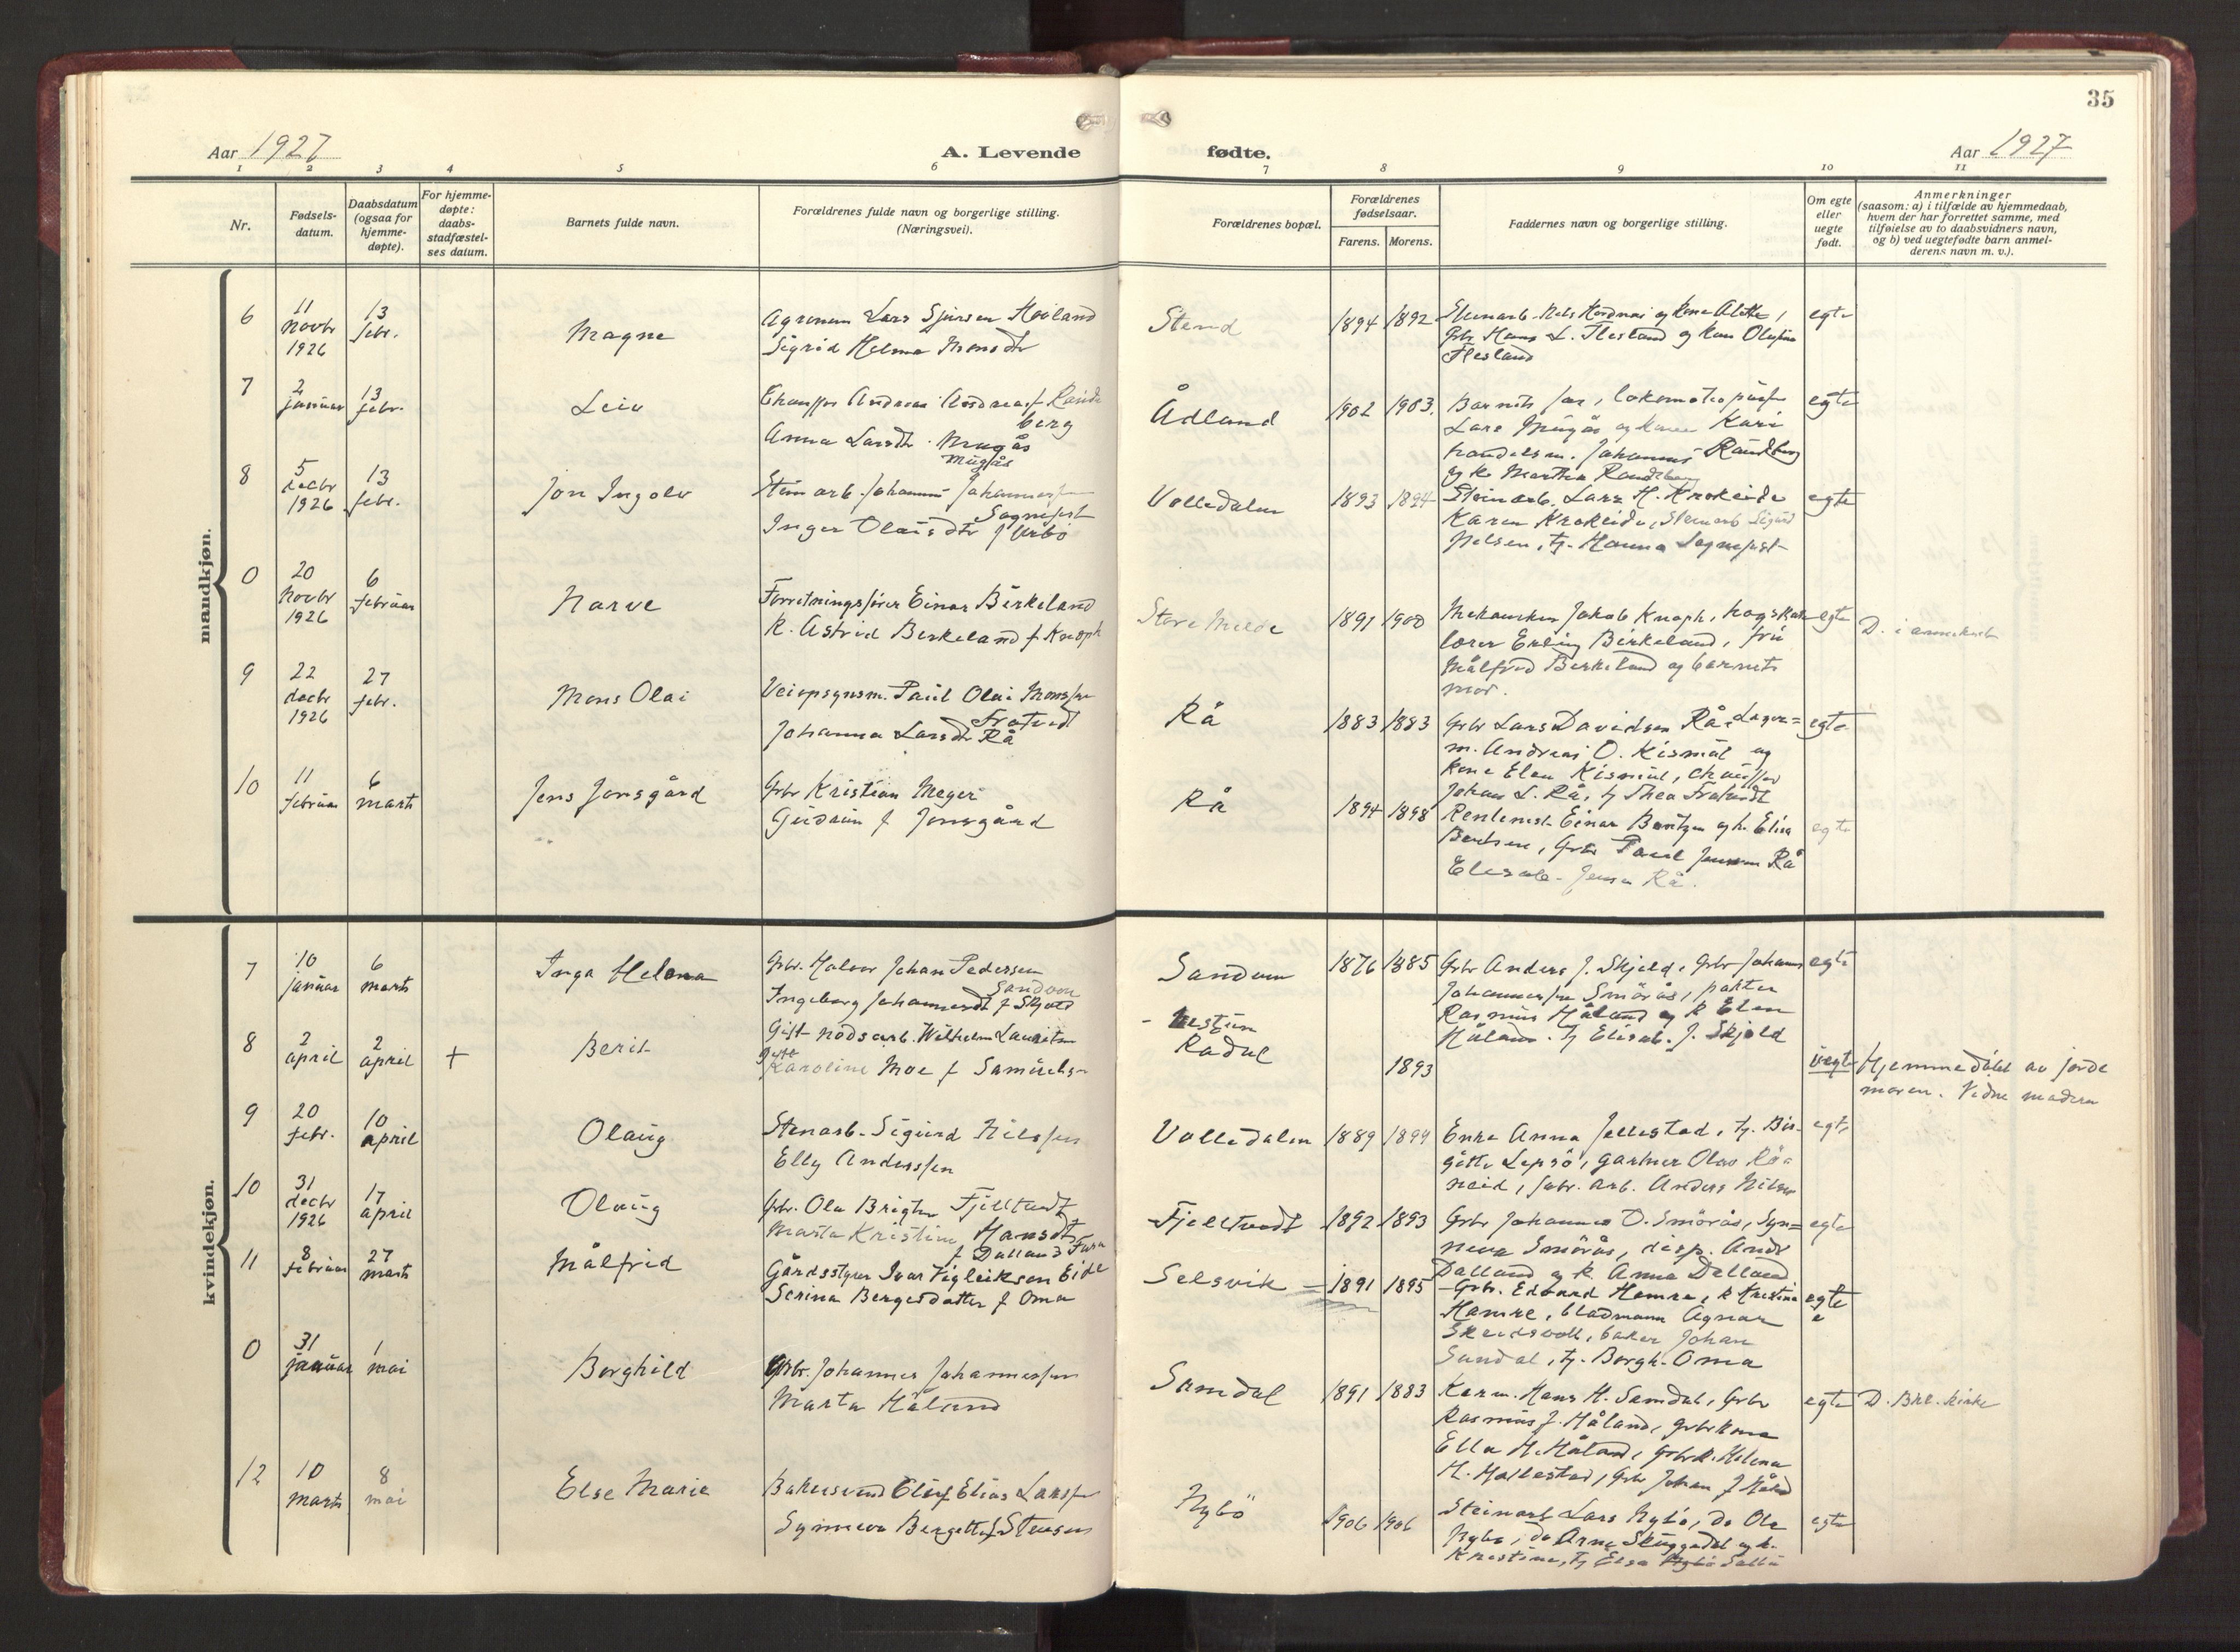 35
Aar 1927
A. Levende
fødte.
Aar 1927
1 2 3 4 5 6 7 8 9 10 11
Nr.
Fødsels-
datum.
Daabsdatum
(ogsaa for
hjemme-
døpte).
For hjemme-
døpte:
daabs-
stadfæstel-
ses datum.
Barnets fulde navn.
Forældrenes fulde navn og borgerlige stilling.
(Næringsvei).
Forældrenes bopæl.
Forældrenes
fødselsaar.
Farens. Morens.
Faddernes navn og borgerlige stilling.
Om egte
eller
uegte
født.
Anmerkninger
(saasom: a) i tilfælde av hjemmedaab,
hvem der har forrettet samme, med
tilføielse av to daabsvidners navn,
og b) ved uegtefødte barn anmel-
derens navn m. v.).
mandkjøn.
6
11
novbr
1926
13
febr.
Magne
Agronom Lars Sjursen Høiland
Sigrid Helma Monsdtr
Stend
1894 1892
Stenarb. Nels Hordnæs og kone Alette,
Grbr Hans L. Flesland og kone
Flesland
egte
7
2
januar
13
febr.
Leiv
Andreas Andreass. Rands
berg
Anna Larsdtr. Mugås
Mugås
Ådland
1902 1903.
Barnets far,
Lars Mugås og kone Kari
handelsm. Johannes Randsberg
og k. Martha Randsberg
egte
8
5
decbr
1926
13
febr.
Jon Ingolv
Stenarb. Johannes Johannessen
Sognefest
Inger Olaisdtr f
Volledalen
1893 1894
Steinarb. Lars H. Krokeide
Karen Krokeide, Steinarb Sigurd
Nelsen, tj. Hanna Sognefest
egte
0
20
novbr
1926
6
februar
Narve
Forretningsfører Einar Birkeland
k. Astrid Birkeland f Knoph
Store Milde
1891 1900
Mekaniker Jakob Knoph, høgskole
lærer Erling Birkeland, fru
Målfrid Birkeland og barnets
mor.
egte
D. i
9
22
decbr
1926
27
febr.
Mons Olai
Veiopsynsm. Paul Olai Monssen
Fratvedt
Johanna Larsdtr Rå
Rå
1883 1883
Grbr Lars Davidsen Rå, Lager=
m. Andreas O. Kismul og
kone Elen Kismul, chauffør
Johan L. Rå, tj Thea Fratvedt
egte
10
11
februar
6
marts
Jens Jonsgård
Grbr Kristian Meyer
Gudrun f Jonsgård
Rå
1894 1898
Rentenist Einar Bentzen og h. Elisa
Bentsen, Grbr Paul Jensen Rå
Jensen Rå.
egte
kvindekjøn.
7
10
januar
6
marts
Inga Helena
Grbr. Halvor Johan Pedersen
Sandven
Ingeborg Johannesdtr f Skjold
Sandven
1876 1885
Grbr Anders J. Skjold, Grbr Johannes
Johannessen Smörås, pakter
Rasmus Håland og k Elen
Håland. tj Elisab. J. Skjold
egte
8
2
april
2
april
+
Berit
Gift nödsarb. Wilhelm Lauritsen
gifte
Karoline Moe f Samuels
- Nestun
Rådal
1893
uegte
Hjemmedöbt av jorde
moren. Vidne moderen
9
20
febr.
10
april
Olaug
Stenarb. Sigurd Nilssen
Elly Anderssen
Volledalen
1889 1899
Enke Anna Jellestad, tj. Bir-
gitte Lepsö, gartner Olav Rö=
neid, fabr. arb. Anders Nilsen
egte
10
31
decbr
1926
17
april
Olaug
Grbr. Ola Brigtsen Fjelltvedt
Marta Kristine Hansdtr
f Dalland Fusa
Fjelltvedt
1892 1893
Grbr Johannes O. Smörås, Syn=
neva Smörås, disp. Andr
Dalland og k. Anna Dalland
egte
11
8
februar
27
marts
Målfrid
Gårdsstyrer Ivar Vigleikson Eide
Serina Bergesdatter f Oma
Selsvik
1891 1895
Grbr. Edvard Hamre, k Kristina
Hamre, bladmann Agnar
Skeidsvoll, baker Johan
Sundal, tj. Borgh. Oma
egte
0
31
januar
1
mai
Borghild
Grbr. Johannes Johannessen
Marta Håland
Samdal
1891 1883
Karm. Hans H. Samdal, Grbr
Rasmus J. Håland, grbrkone
Ella M. Håland, Grbrk. Helena
H. Hallestad, Grbr Johan J Håland
egte
D. Bke. kirke
12
10
marts
8
mai
Else Marie
Bakersvend Eluf Elias Larssen
Synneva Bergette f Stensen
Nybö
1906 1906
Steinarb Lars Nybö, do Ole
Nybö, do Arne Skuggedal og k.
Kristine, tj Elsa
egte